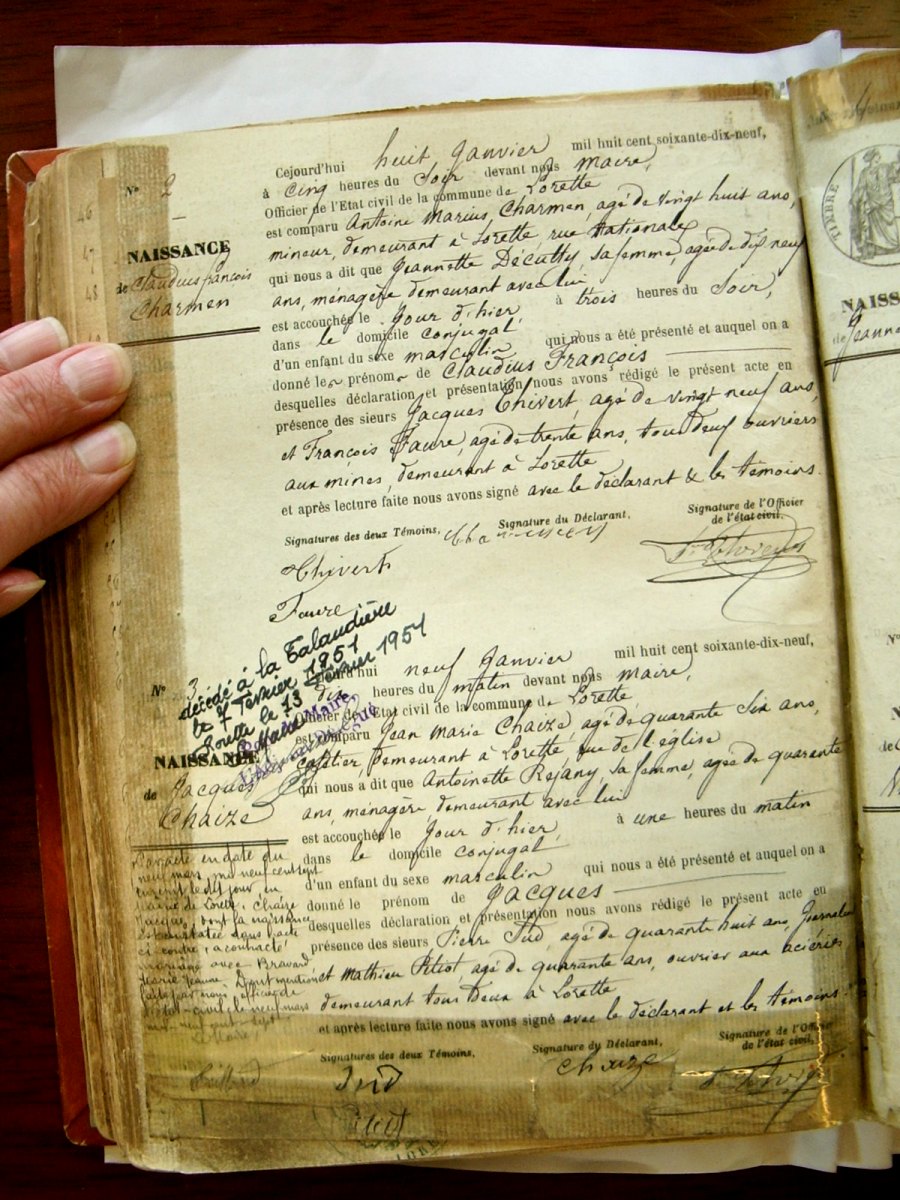 Nº 2
NAISSANCE
de Claudius françois
Charmen
Cejourd'hui huit Janvier mil huit cent soixante-dix-neuf,
à cinq heures du Soir devant nous maire,
Officier de l'Etat civil de la commune de Lorette
est comparu Antoine Marius Charmen, agé de vingt huit ans,
mineur, demeurant à Lorette, rue Nationale
qui nous a dit que Jeannette Décully, sa femme, agée de dix neuf
ans, ménagère demeurant avec lui
est accouchée le Jour d'hier, à trois heures du Soir,
dans le domicile conjugal,
d'un enfant du sexe masculin qui nous a été présenté et auquel on a
donné les prénoms de Claudius François
desquelles déclaration et présentation nous avons rédigé le présent acte en
présence des sieurs Jacques Thivert, agé de vingt neuf ans,
et François Faure, agé de trente ans, tous deux ouvriers
aux mines, demeurant à Lorette
et après lecture faite nous avons signé avec le déclarant & les témoins.
Signatures des deux Témoins, Signature du Déclarant, Signature de l'Officier
de l'état civil.
Thivert
Faure
Nº 3
décédé à la Talaudière
le 7 février 1951
Lorette le 13 février 1951
Maire
NAISSANCE
de Jacques
Chaize
neuf Janvier mil huit cent soixante-dix-neuf,
à dix heures du matin devant nous maire,
Officier de l'Etat civil de la commune de Lorette
est comparu Jean Marie Chaize, agé de quarante six ans,
cafetier, demeurant à Lorette, rue de l'église
qui nous a dit que Antoinette Rejany, sa femme, agée de quarante
ans, ménagère, demeurant avec lui
est accouchée le Jour d'hier, à une heures du matin
dans le domicile conjugal
d'un enfant du sexe masculin qui nous a été présenté et auquel on a
donné le prénom de Jacques
desquelles déclaration et présentation nous avons rédigé le présent acte en
présence des sieurs Pierre Sud, agé de quarante huit ans, Journalier
et Mathieu Pitiot, agé de quarante ans, ouvrier aux aciéries
demeurant tous deux à Lorette
et après lecture faite nous avons signé avec le déclarant et les témoins.
Signatures des deux Témoins, Signature du Déclarant, Signature de l'Officier
de l'état civil,
Sud
Chaize
Par acte en date du
neuf mars, mil neuf cent sept
mairie de Lorette, Chaize
Jacques, dont la naissance
est constatée sous l'acte
ci contre, a contracté
mariage avec Bravard
Marie Jeanne. Dont mention
faite par nous officier de
l'état-civil le neuf mars
mil neuf cent sept
Le Maire,
TIMBRE
NAISS
de Jeanne